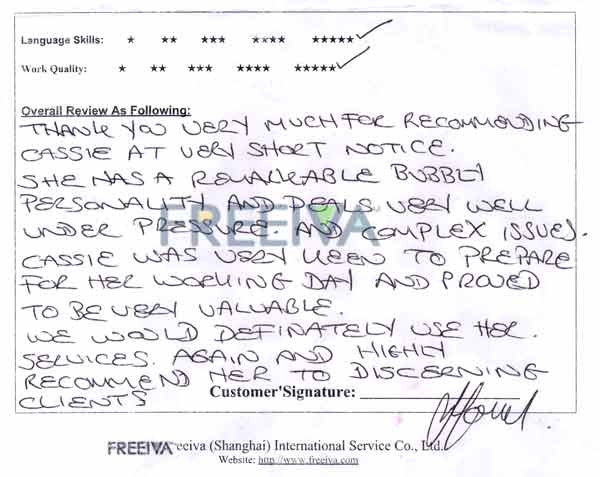 Language Skills: ★ ★★ ★★★ ★★★★ ★★★★★
Work Quality: ★ ★★ ★★★ ★★★★ ★★★★★
Overall Review As Following:
THANK YOU VERY MUCH FOR RECOMMENDING
CASSIE AT VERY SHORT NOTICE.
SHE HAS A REMARKABLE BUBBLY
PERSONALITY AND DEALS VERY WELL
FREEIVA
UNDER PRESSURE. AND COMPLEX ISSUES.
CASSIE WAS VERY KEEN TO PREPARE
FOR HER WORKING DAY AND PROVED
TO BE VERY VALUABLE.
WE WOULD DEFINATELY USE HER.
SERVICES. AGAIN AND HIGHLY
RECOMMEND HER TO DISCERNING
CLIENTS
Customer'Signature:
FREEIVA eeiva (Shanghai) International Service Co., Ltd.
Website: http://www.freeiva.com